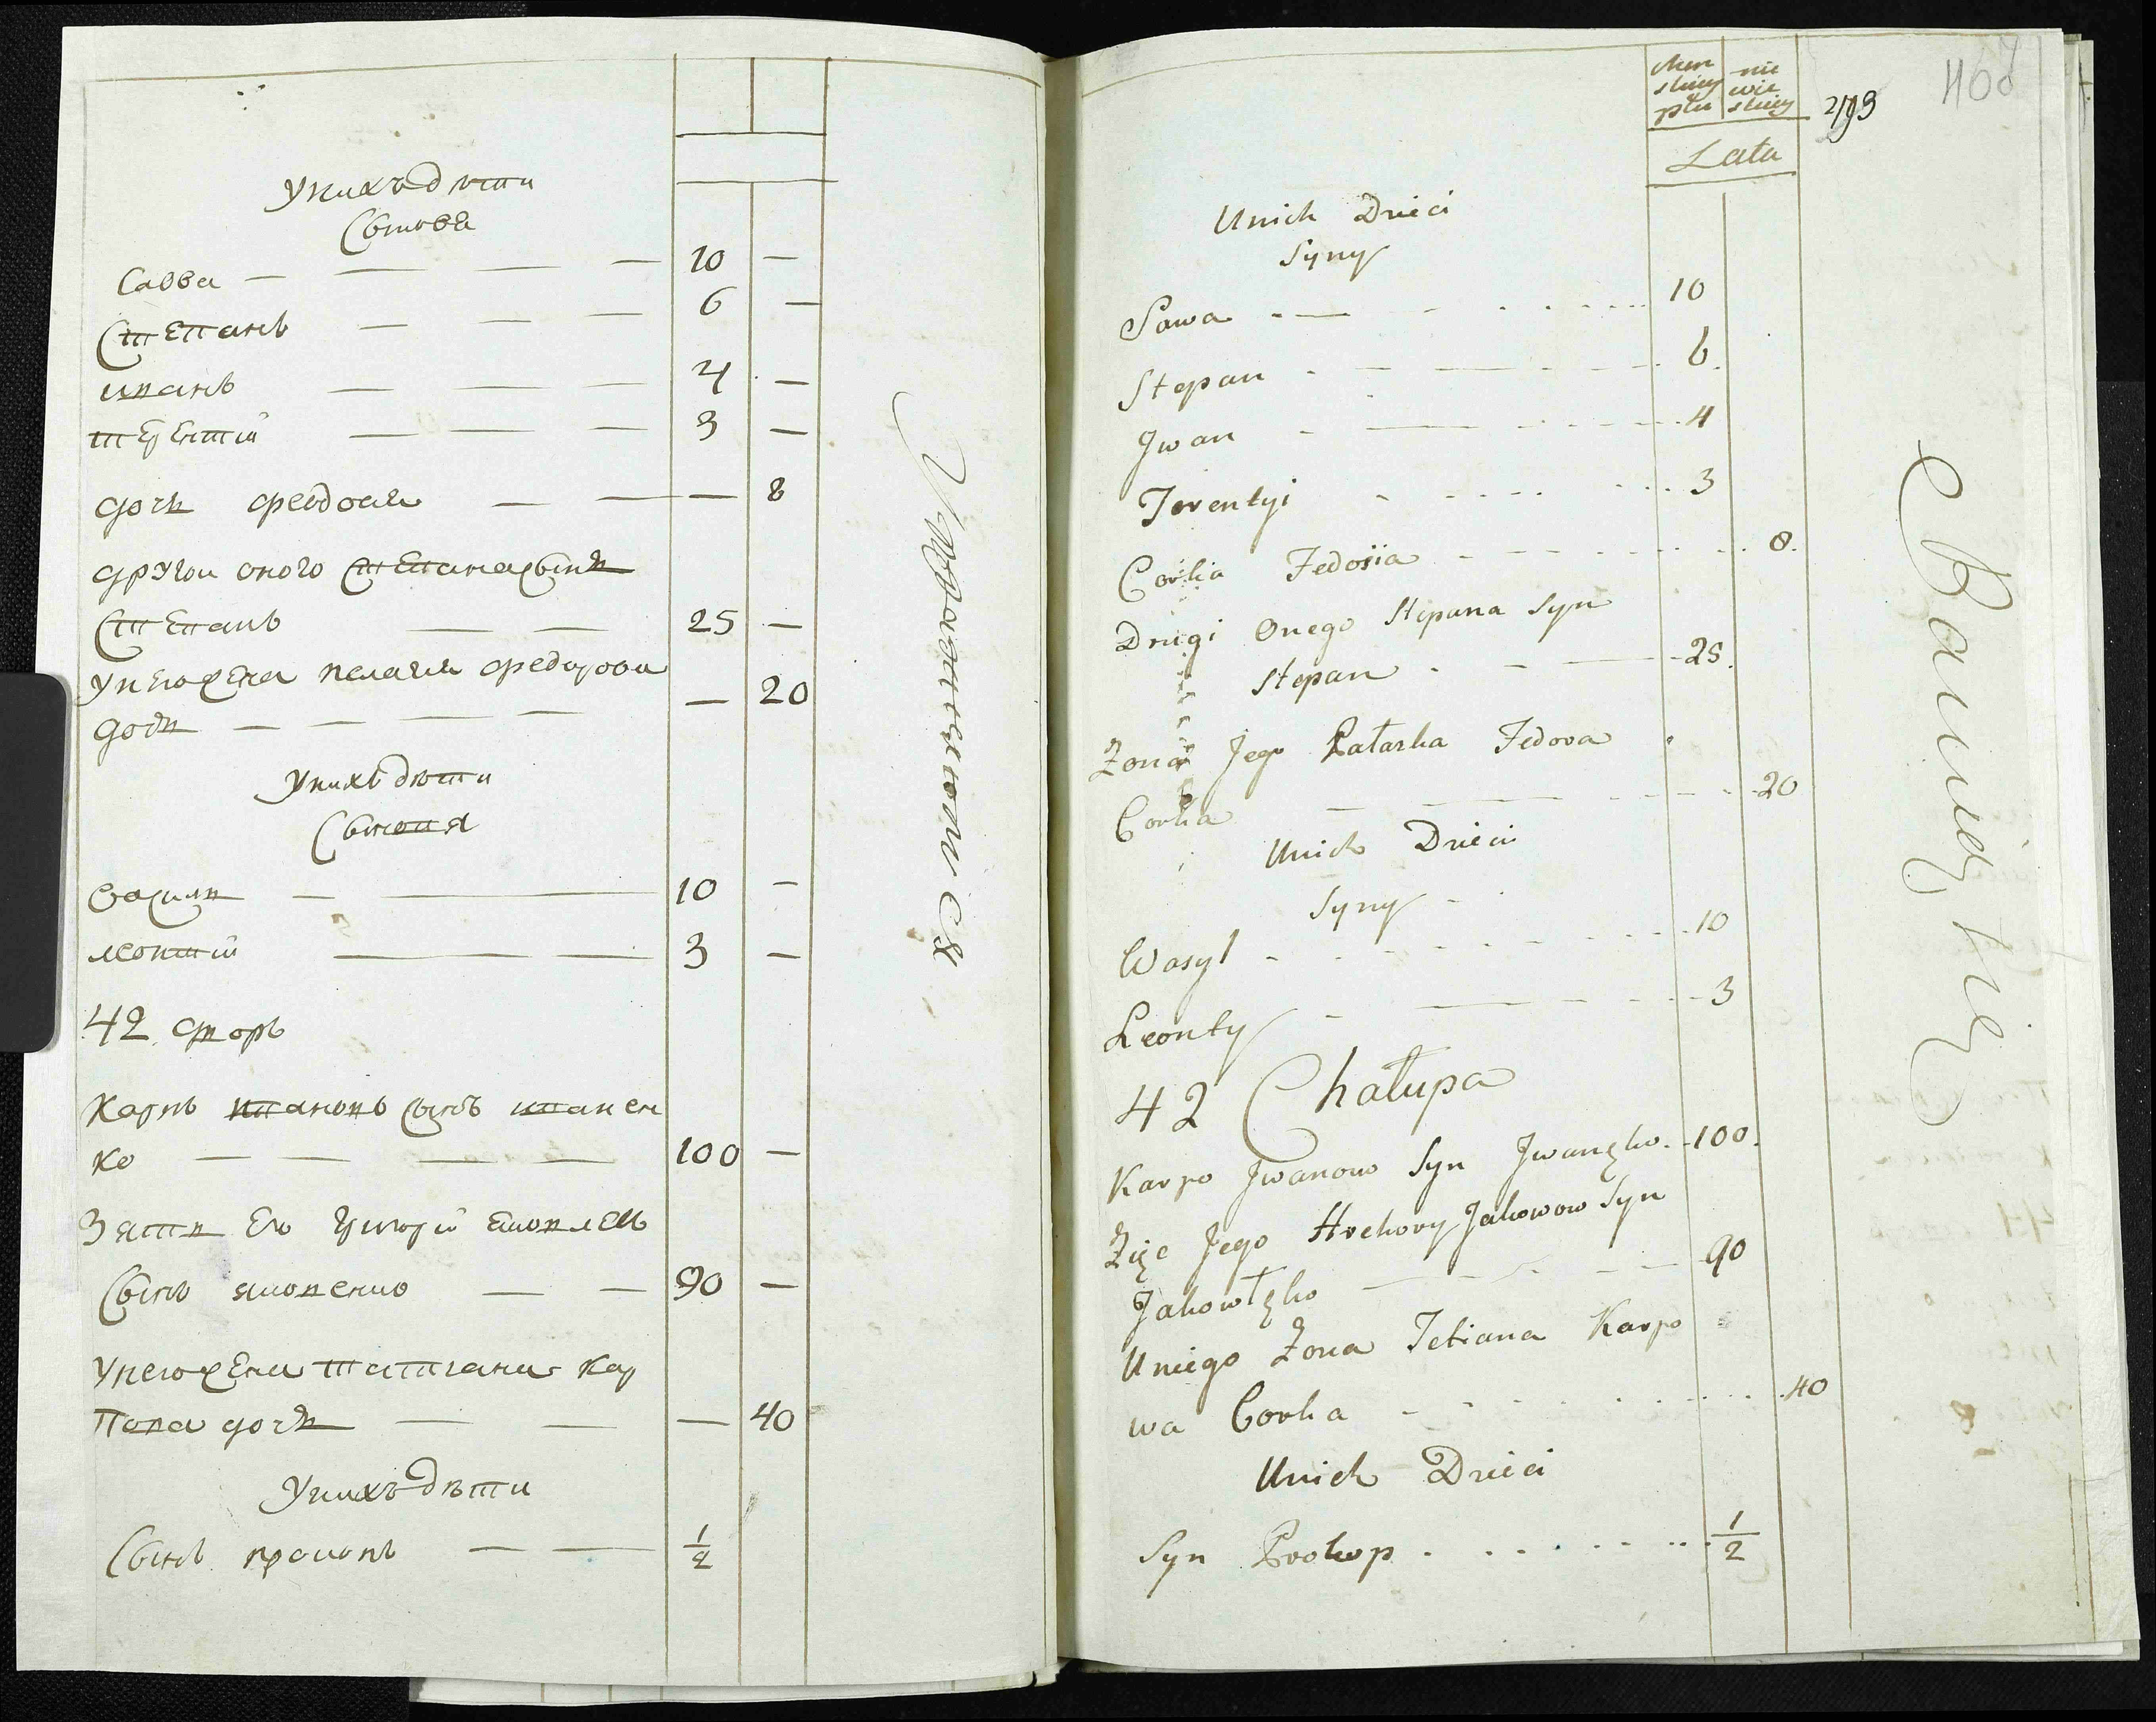 Унихъ дѣти
Сынове
Савва — — — — 10 —
Степанъ — — — 6 —
иванъ — — — 4 —
терентій — — — 3 —
дочь феодосия — — — 8
другои оного степана сынъ
Степанъ — — 25 —
унего жена пелагия федорова
дочь — — — — — 20
Унихъ дѣти
Сыновя
василь — — 10 —
леонтій — — 3 —
42 дворъ
Карпъ ивановъ сынъ иванен
ко — — — — 100 —
Зять его григорій яковлевъ
сынъ яковенко — — 90 —
унего жена татиана кар
пова дочь — — — 40
Унихъ дѣти
Сынъ прокопъ — — 1/2
men skiey płci
nie wie skiey
Lata
293
408
Unich Dzieci
Syny
Sawa 10
Stepan 6.
Jwan 4
Terentyi 3
Corka Fedosia 8.
Drugi Onego Stepana Syn
Stepan 25.
Zona Jego Pałaska Fedora
Corka 20
Unich Dzieci
Syny
Wasyl 10
Leonty 3
42 Chałupa
Karpo Jwanow Syn Jwanęko 100.
Zięc Jego Hrehory Jakowow Syn
90
Uniego Zona Tetiana Karpo
wa Corka 40
Unich Dzieci
Syn Prokop 1/2